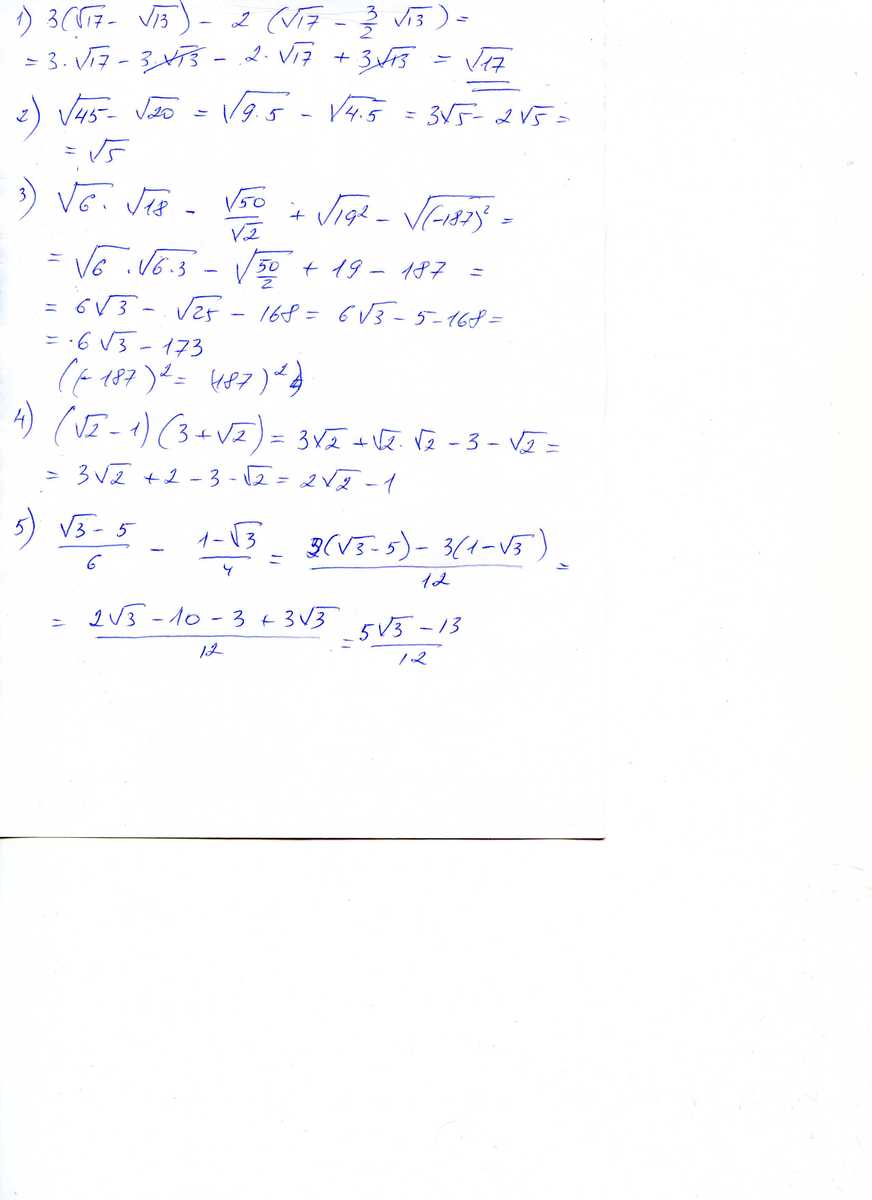 1) 3(√17 - √13) - 2 (√17 - 3/2 √13) =
= 3·√17 - 3·√13 - 2·√17 + 3√13 = √17
2) √45 - √20 = √9·5 - √4·5 = 3√5 - 2√5 =
= √5
3) √6 · √18 - √50/√2 + √19² - √(-187)² =
= √6 · √6·3 - √50/2 + 19 - 187 =
= 6√3 - √25 - 168 = 6√3 - 5 - 168 =
= 6√3 - 173
((-187)² = (187)²)
4) (√2 - 1)(3 + √2) = 3√2 + √2·√2 - 3 - √2 =
= 3√2 + 2 - 3 - √2 = 2√2 - 1
5) √3 - 5/6 - 1 - √3/4 = 2(√3 - 5) - 3(1 - √3)/12 =
= 2√3 - 10 - 3 + 3√3/12 = 5√3 - 13/12